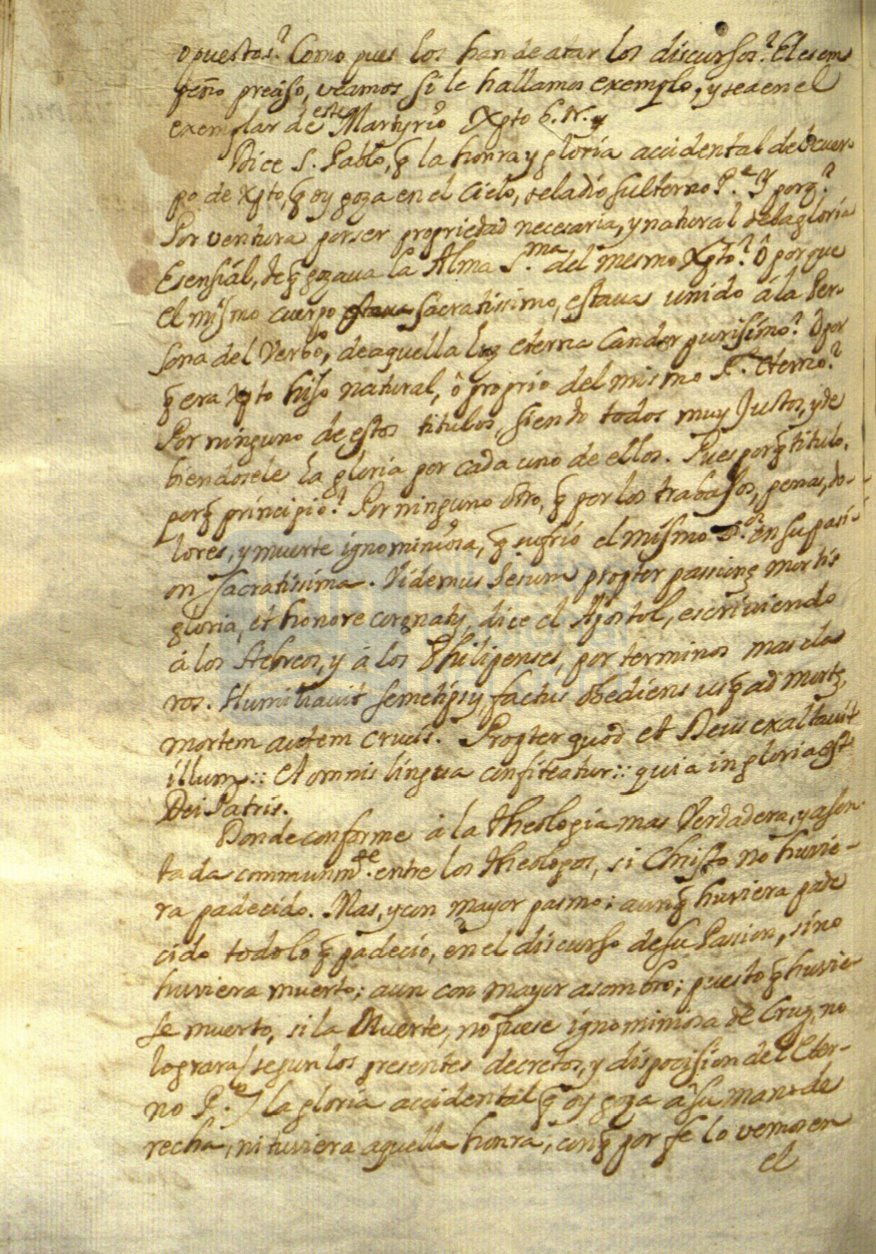 opuestos? Como pues los han de atar los discursos? El es em
peño preciso, veamos si le hallamos exemplo, y sea en el
exemplar de este Martyrio Xpto
Dice S. Pablo, q̃ la honra y gloria accidental del cuer-
po de Xpto, q̃ oy goza en el Cielo, se la dio su eterno P.e Y porq̃?
Por ventura por ser propriedad necesaria, y natural de la gloria
Esensiál, de q̃ gozaua la Alma S.ma del mesmo Xpto? ô porque
el mismo cuerpo sacratissimo, estaua unido â la Per-
sona del Verbo, de aquella luz eterna Candor purisimo? ô por
q̃ era Xpto hijo natural, ô proprio del mismo P.e eterno?
Por ninguno de estos titulos, siendo todos muy Justos, y de
biendosele la gloria por cada uno de ellos. Pues por q̃ titulo,
por q̃ principio? Por ninguno otro, q̃ por los trabajos, penas, do-
lores, y muerte ignominiosa, q̃ sufrió el mismo en su pasi-
on sacratissima. Videmus Iesum propter passionẽ mortis
gloria, et honore coronatũ, dice el Apostol, escriviendo
á los Hebreos, y á los Philipenses, por terminos mas cla
ros. Humiliavit semetipsũ factus obediens usq̃ ad mortẽ,
mortem autem crucis. Propter quod et Deus exaltavit
illum:: et omnis lingua confiteatur:: quia in gloria est
Dei Patris.
Donde conforme á la theologia mas Verdadera, y asen-
tada communm.te entre los theologos, si Christo no huvie-
ra padecido. Mas, y con mayor pasmo: aunq̃ huviera pade
cido todo lo q̃ padeció, en el discurso de su Passion, sino
huviera muerto; aun con mayor asombro; puesto q̃ huvie-
se muerto, si la Muerte, no fuese ignominiosa de Cruz, no
lograra (segun los presentes decretos, y disposicion del Eter-
no P.e) la gloria accidental q̃ oy goza â su mano de
recha, ni tuviera aquella honra, con q̃ por fe lo vemos en
el